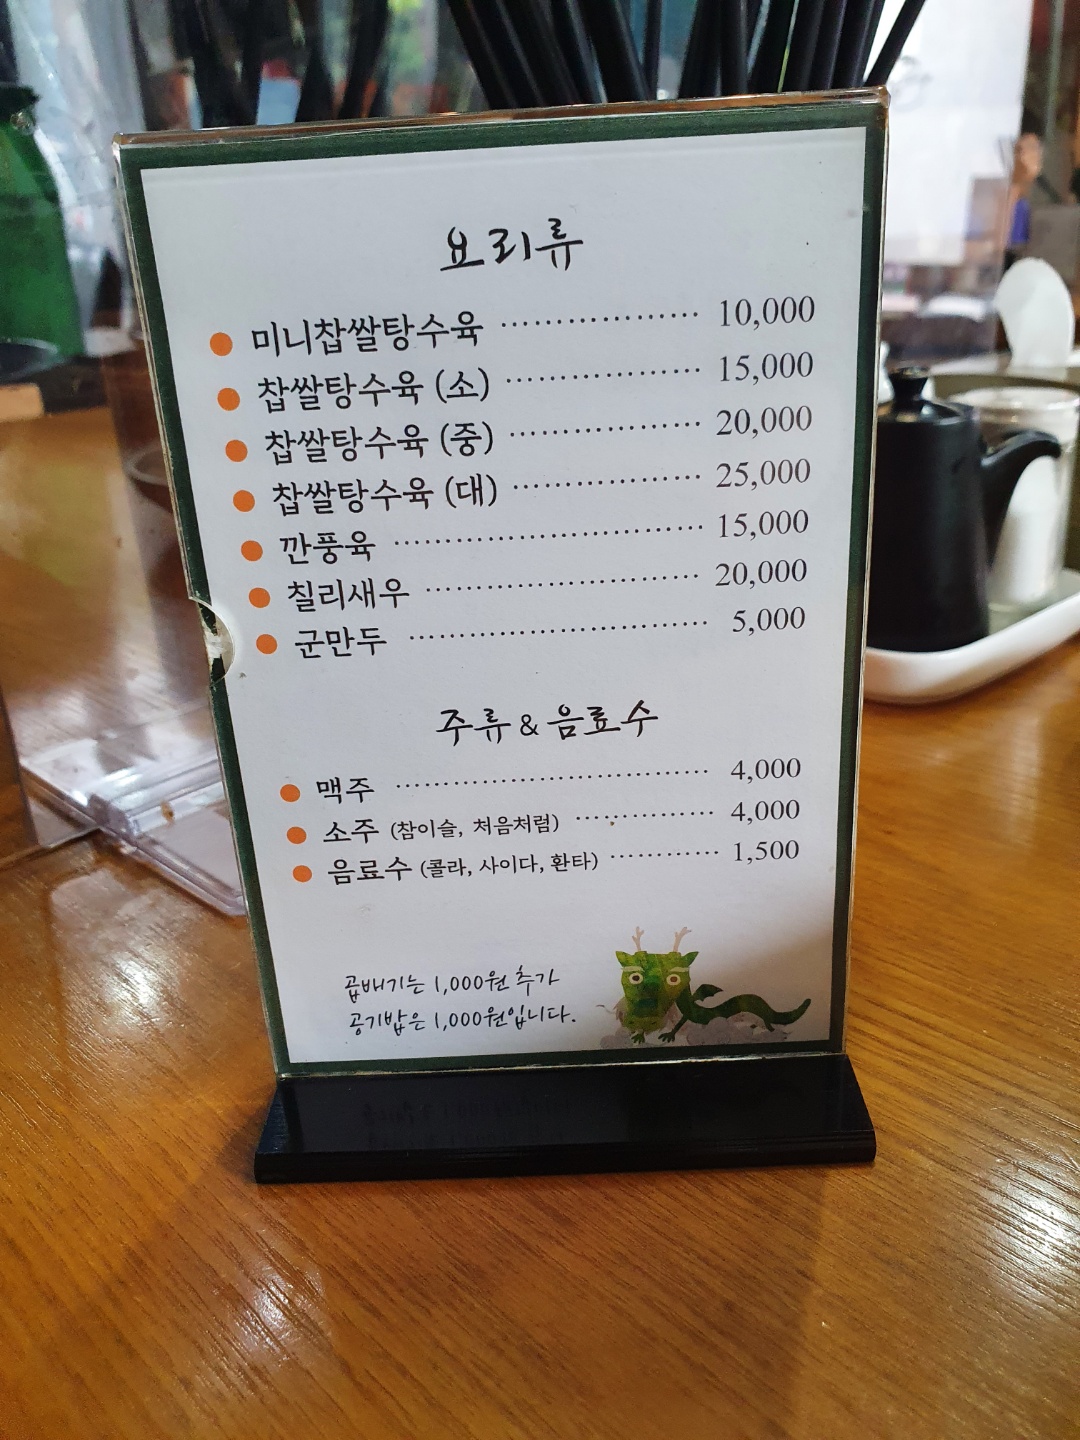 요리류
미니찹쌀탕수육 ···················· 10,000
찹쌀탕수육 (소) ···················· 15,000
찹쌀탕수육 (중) ···················· 20,000
찹쌀탕수육 (대) ···················· 25,000
깐풍육 ································ 15,000
칠리새우 ···························· 20,000
군만두 ································ 5,000
주류 & 음료수
맥주 ································ 4,000
소주 (참이슬, 처음처럼) ··············· 4,000
음료수 (콜라, 사이다, 환타) ············ 1,500
곱배기는 1,000원 추가
공기밥은 1,000원입니다.